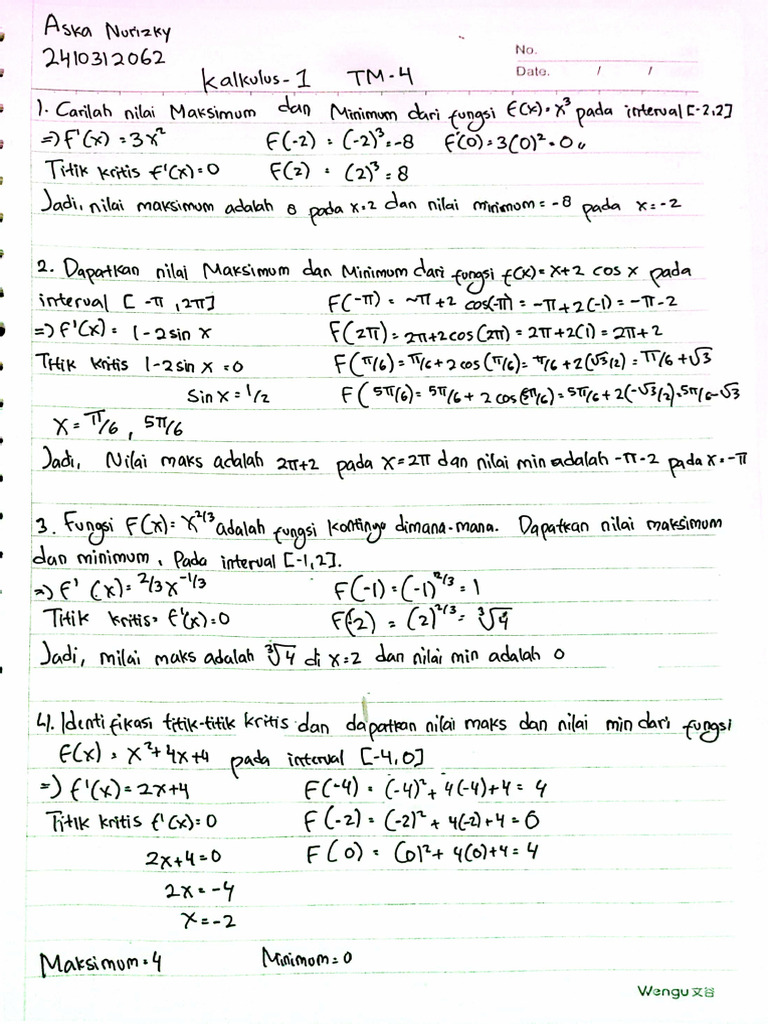 Aska Nurizky
2410312062
No.
Date. / /
Kalkulus-1 TM-4
1. Carilah nilai Maksimum dan Minimum dari fungsi f(x) = x³ pada interval [-2,2]
=> f'(x) = 3x² F(-2) = (-2)³ = -8 F'(0) = 3(0)² = 0 //
Titik kritis f'(x) = 0 F(2) = (2)³ = 8
Jadi, nilai maksimum adalah 8 pada x=2 dan nilai minimum = -8 pada x = -2
2. Dapatkan nilai Maksimum dan Minimum dari fungsi f(x) = x+2 cos x pada
interval [-π, 2π] F(-π) = -π + 2 cos(-π) = -π + 2(-1) = -π - 2
=> f'(x) = 1 - 2 sin x F(2π) = 2π + 2 cos(2π) = 2π + 2(1) = 2π + 2
Titik kritis 1 - 2 sin x = 0 F(π/6) = π/6 + 2 cos(π/6) = π/6 + 2(√3/2) = π/6 + √3
Sin x = 1/2 F(5π/6) = 5π/6 + 2 cos(5π/6) = 5π/6 + 2(-√3/2) = 5π/6 - √3
x = π/6, 5π/6
Jadi, Nilai maks adalah 2π+2 pada x=2π dan nilai min adalah -π-2 pada x = -π
3. Fungsi F(x) = x^2/3 adalah fungsi kontinyu dimana-mana. Dapatkan nilai maksimum
dan minimum. Pada interval [-1,2].
=> f'(x) = 2/3 x^-1/3 F(-1) = (-1)^2/3 = 1
Titik kritis = f'(x) = 0 F(2) = (2)^2/3 = ∛4
Jadi, milai maks adalah ∛4 di x=2 dan nilai min adalah 0
4. Identifikasi titik-titik kritis dan dapatkan nilai maks dan nilai min dari fungsi
f(x) = x² + 4x + 4 pada interval [-4,0]
=> f'(x) = 2x+4 F(-4) = (-4)² + 4(-4) + 4 = 4
Titik kritis f'(x) = 0 F(-2) = (-2)² + 4(-2) + 4 = 0
2x+4 = 0 F(0) = (0)² + 4(0) + 4 = 4
2x = -4
x = -2
Maksimum = 4 Minimum = 0
Wengu 文谷